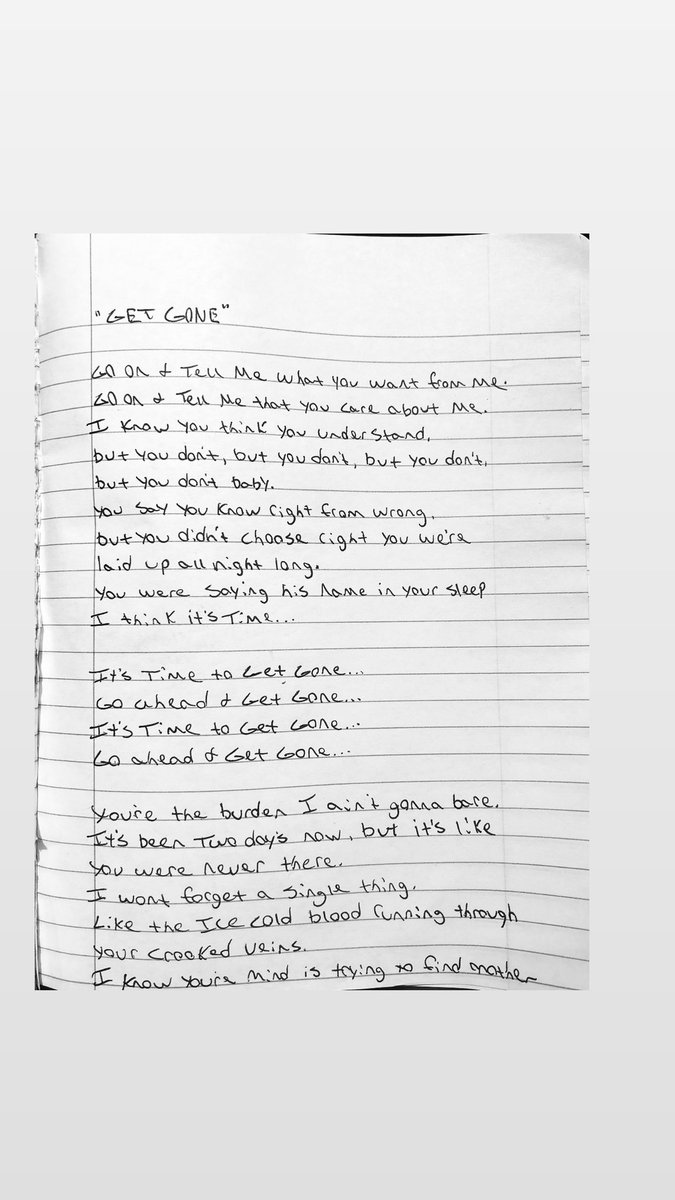 "GET GONE"
GO ON & Tell Me what you want from me.
GO ON & Tell Me that you care about me.
I know you think you understand,
but you don't, but you don't, but you don't,
but you don't baby.
you say you know right from wrong,
but you didn't choose right you we're
laid up all night long.
you were saying his name in your sleep
I think it's Time...
It's Time to Get Gone...
Go ahead & Get Gone...
It's Time to Get Gone...
Go ahead & Get Gone...
You're the burden I ain't gonna bare.
It's been Two day's now, but it's like
you were never there.
I wont forget a single thing.
Like the Ice cold blood running through
your crooked veins.
I know you're mind is trying to find another